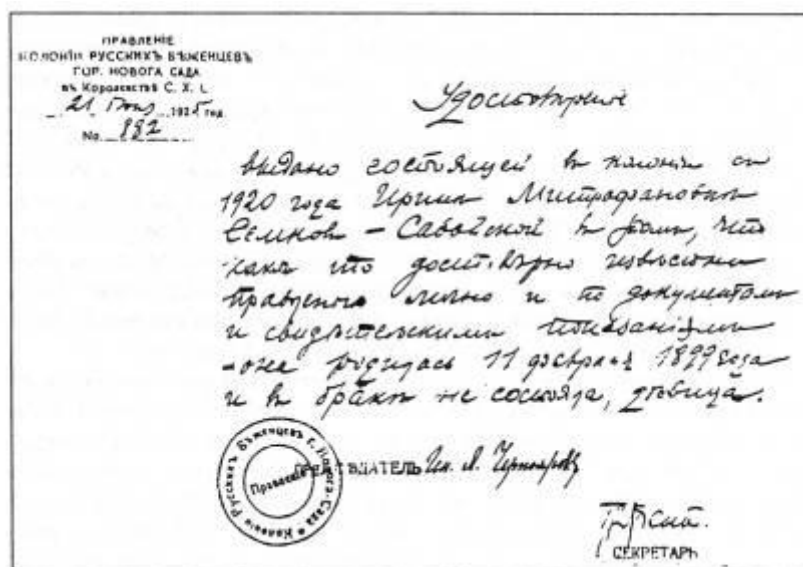 ПРАВЛЕНІЕ
КОЛОНІИ РУССКИХЪ БѢЖЕНЦЕВЪ
ГОР. НОВОГА САДА
въ Королевствѣ С. Х. С.
21 192 год.
No. 882
Удостовѣреніе
выдано состоящей в колоніи съ
1920 года Иринѣ Митрофановнѣ
Семков - Савойской в томъ, что
какъ это достовѣрно извѣстно
Правленію лично и по документамъ
и свидѣтельскими показаніями
она родилась 11 февраля 1899 года
и в бракѣ не состояла, дѣвица.
Колонія Русскихъ Бѣженцевъ г. Новога-Сада
Правленіе
ПРЕДСѢДАТЕЛЬ
СЕКРЕТАРЬ